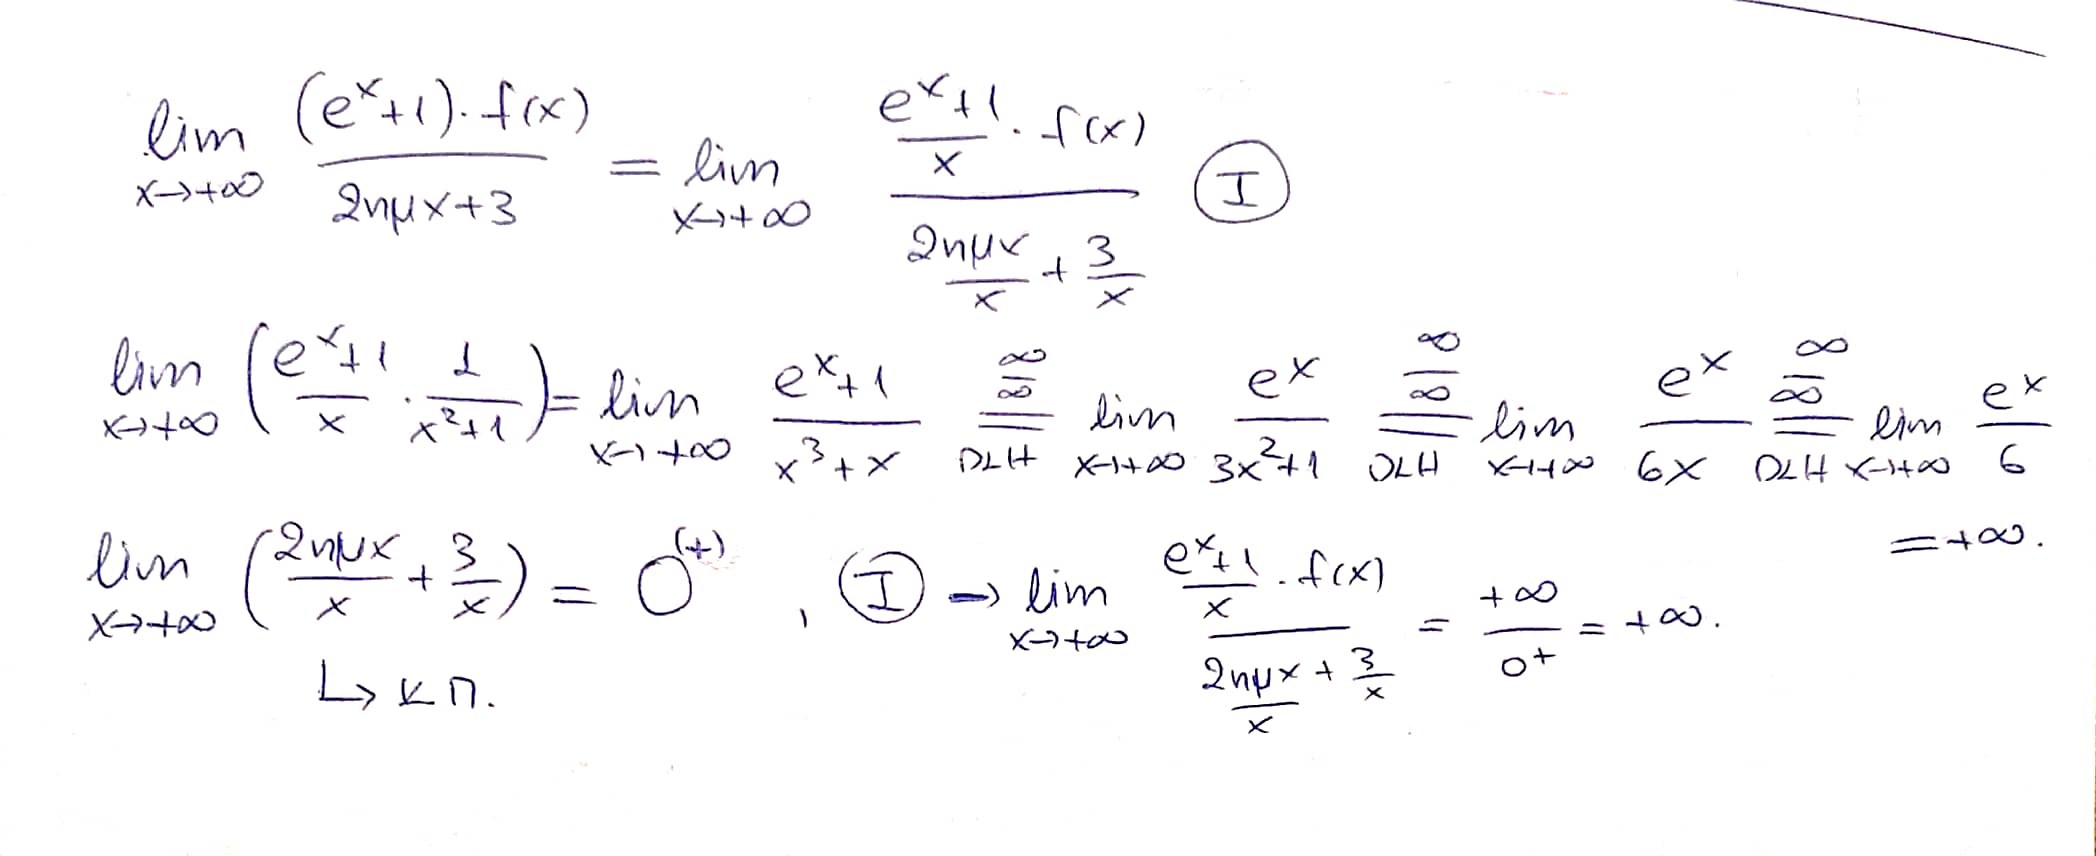 lim x→+∞ (eˣ+1)·f(x) / (2ημx+3) = lim x→+∞ ((eˣ+1)/x · f(x)) / (2ημx/x + 3/x) (I)
lim x→+∞ ((eˣ+1)/x · 1/(x²+1)) = lim x→+∞ (eˣ+1)/(x³+x) =(∞/∞, DLH) lim x→+∞ eˣ/(3x²+1) =(∞/∞, DLH) lim x→+∞ eˣ/(6x) =(∞/∞, DLH) lim x→+∞ eˣ/6
= +∞.
lim x→+∞ (2ημx/x + 3/x) = 0⁽⁺⁾, (I) → lim x→+∞ ((eˣ+1)/x · f(x)) / (2ημx/x + 3/x) = +∞/0⁺ = +∞.
↳ κ Π.